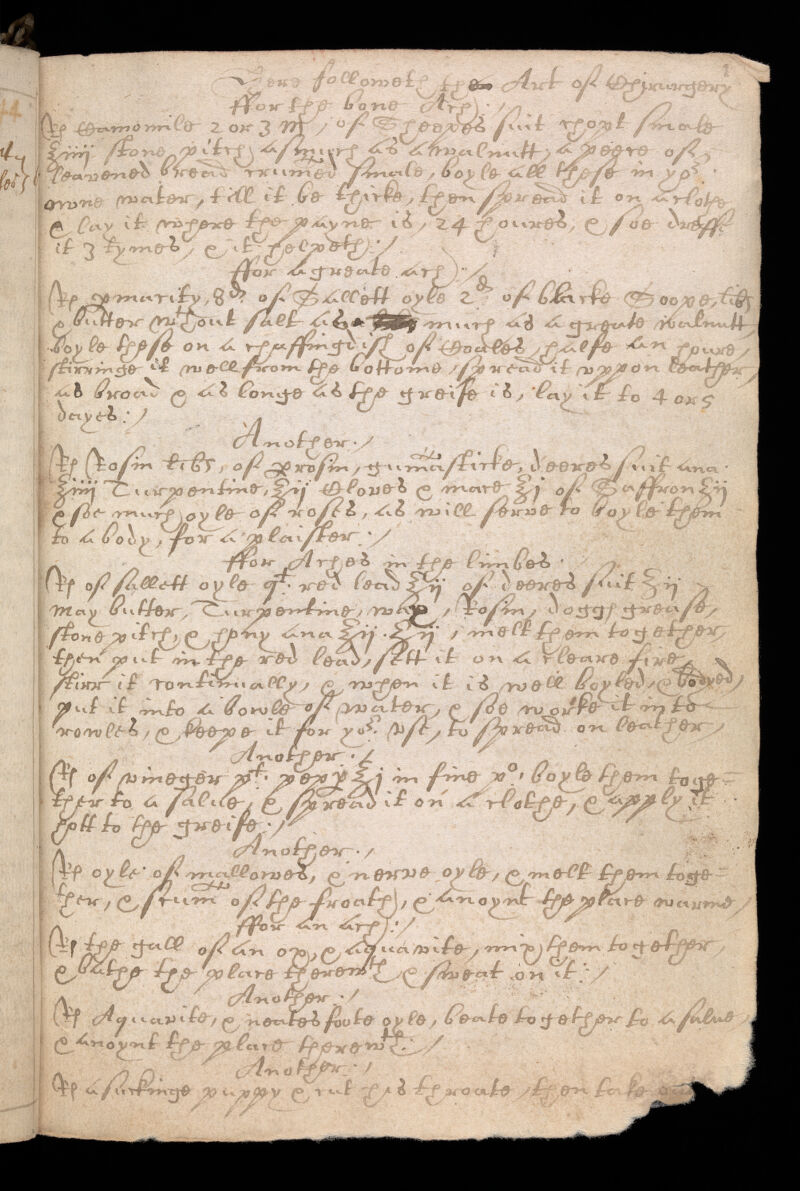 1
Here followeth the Art of Chirurgery
ffor the bone Ach:/
℞ Camomile 2 or 3 M, of Sheepes suit chopt smale
℥iiij stone pitch asmuch as a walnutt, a peece of
leavened bread crumed smale, boyle all these in yor.
owne water, till it be thicke, then spread it on a clothe
& lay it where the payne is, 24 houres, & soe dresse
it 3 tymes, & it helpeth:/
ffor a greate ach:/
℞ pmacity, 8d of Sallett oyle 2d of blacke Soope,
& butter wthout salt as much as a greate walnutt,
boyle these on a chaffingdish of Coales, halfe an houre,
stirringe it well from the bottome, spread it vppon leather,
as broad & as longe as the greife is, lay it to 4 or 5
dayes:/
Another./
℞ Rosin of prosin, gumasticke, deeres suit ana
℥iiij Turpentine, ℥ij Cloves & mace ℥j of Saffron ℥ij
& soe much oyle of roses, as will serve to boyle them
to a body, for a plaister:/
ffor Aches in the limbes.
℞ of sallett oyle qt. red lead ℥ij of deeres suit ℥ij
May butter, Turpentine, wax, Rosin, doggs grease,
stone pitch, & hony ana ℥ij. ℥ij, melt them together,
then put in the red lead, sett it on a cleare fire
stirr it continually, & when it is well boyled, & bodyed,
put it into a bowle of water, & soe worke it into
rowles, & keepe it for yor. vse, to spread on leather,
Another./
℞ of vineger pt. pepp ℥j in fine po. boyle them toge=
ther to a salue, & spread it on a clothe, & apply it
hott to the greife./
Another./
℞ oyle of mallowes, & nerve oyle, & melt them toge=
ther, & scum of the froath, & anoynt the place warme,
ffor an ach:/
℞ the gall of an ox, & aquavite, mix them together,
& bathe the place therewth & sweat on it:/
Another./
℞ Aquavite, & neates foote oyle, beate together to a salue,
& anoynt the place therewth:/
Another:/
℞ a suckinge puppy & cut his throate, then take